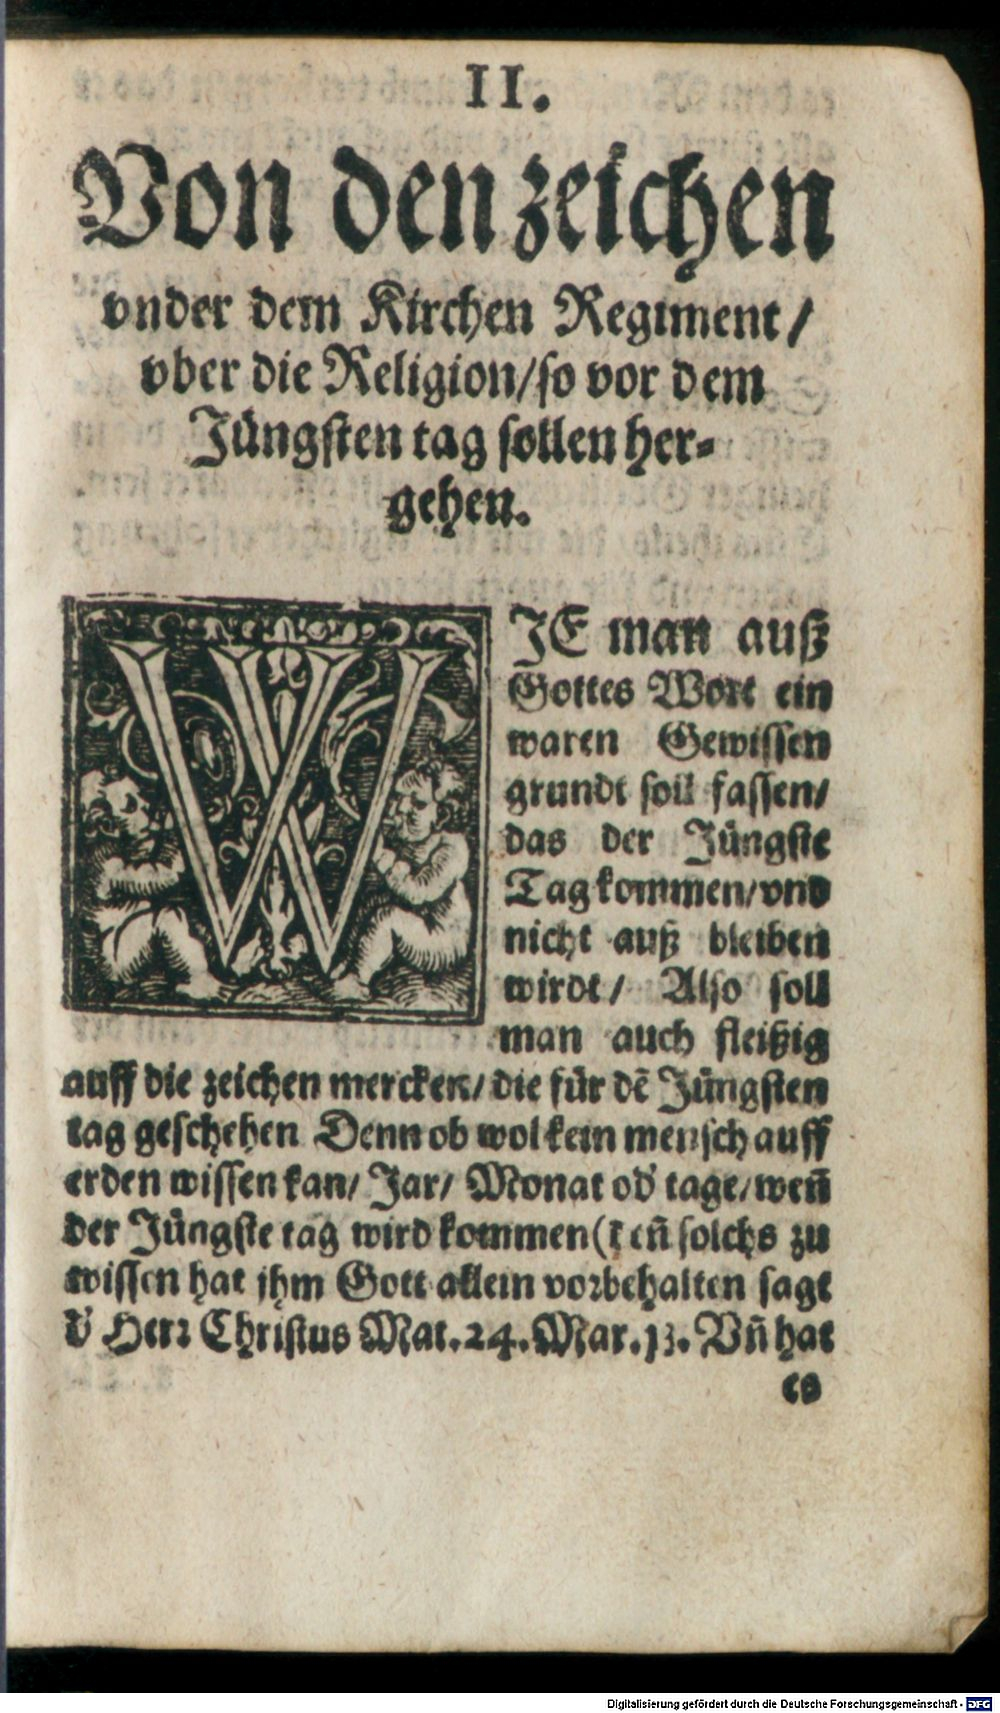 II.
Von den zeichen
vnder dem Kirchen Regiment /
vber die Religion / so vor dem
Jüngsten tag sollen her⸗
gehen.
WJE man auß
Gottes Wort ein
waren Gewissen
grundt soll fassen /
das der Jüngste
Tag kommen / vnd
nicht auß bleiben
wirdt / Also soll
man auch fleißig
auff die zeichen mercken / die für dẽ Jüngsten
tag geschehen Denn ob wol kein mensch auff
erden wissen kan / Jar / Monat od' tage / weñ
der Jüngste tag wird kommen (deñ solchs zu
wissen hat jhm Gott allein vorbehalten sagt
d' Herr Christus Mat. 24. Mar. 13. Vñ hat
es
Digitalisierung gefördert durch die Deutsche Forschungsgemeinschaft - DFG